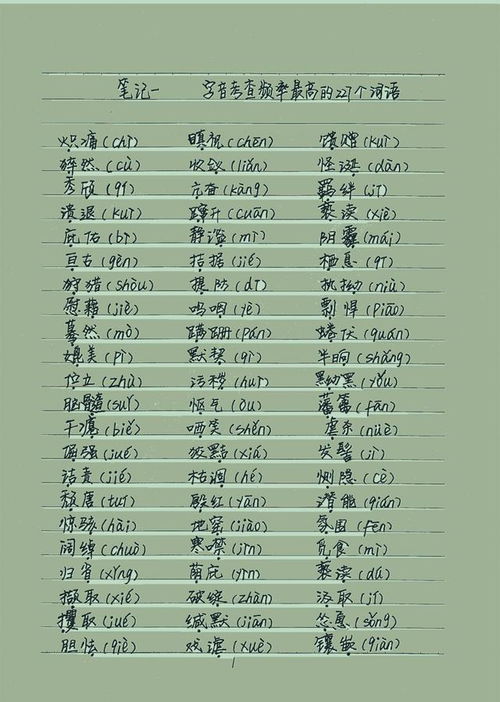 笔记一 字音考查频率最高的227个词语
炽痛(chì) 瞋视(chēn) 馈赠(kuì)
猝然(cù) 收敛(liǎn) 怪诞(dàn)
杀戚(qī) 亢奋(kàng) 羁绊(jī)
溃退(kuì) 蹿升(cuān) 亵渎(xiè)
庇佑(bì) 静谧(mì) 阴霾(mái)
亘古(gèn) 拮据(jié) 栖息(qī)
狩猎(shòu) 提防(dī) 执拗(niù)
慰藉(jiè) 呜咽(yè) 剽悍(piāo)
蓦然(mò) 蹒跚(pán) 蜷伏(quán)
媲美(pì) 默契(qì) 半晌(shǎng)
伫立(zhù) 污秽(huì) 黝黑(yǒu)
脑髓(suǐ) 怄气(òu) 藩篱(fān)
干瘪(biě) 哂笑(shěn) 虐杀(nüè)
倔强(jué) 狡黠(xiá) 发髻(jì)
诘责(jié) 枯涸(hé) 恻隐(cè)
颓唐(tuí) 殷红(yān) 潜能(qián)
惊骇(hài) 地窖(jiào) 氛围(fēn)
阔绰(chuò) 寒噤(jìn) 觅食(mì)
归省(xǐng) 荫庇(yìn) 亵渎(dú)
撷取(xié) 破绽(zhàn) 汲取(jí)
攫取(jué) 缄默(jiān) 怂恿(sǒng)
胆怯(qiè) 戏谑(xuè) 镶嵌(qiàn)
1